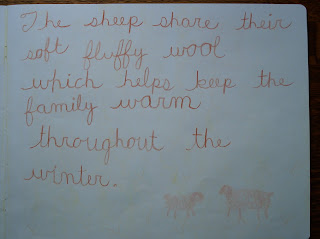 The sheep share their
soft fluffy wool
which helps keep the
family warm
throughout the
winter.